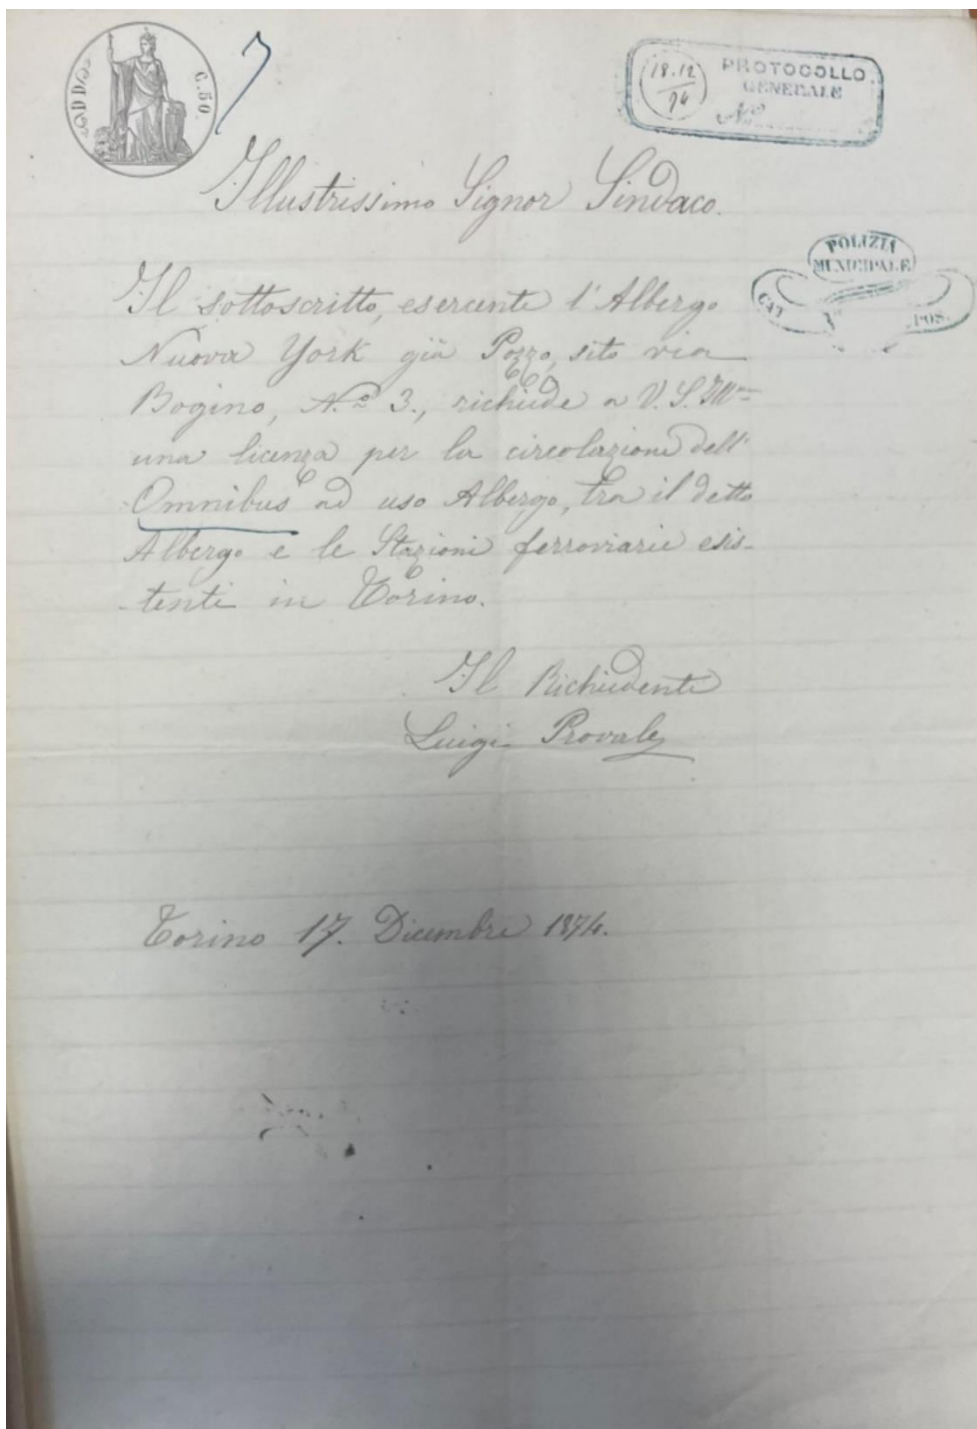 C. 50.
18.12
74
PROTOCOLLO
GENERALE
N°
Illustrissimo Signor Sindaco.
POLIZIA
MUNICIPALE
CAT
POS.
Il sottoscritto, esercente l'Albergo
Nuova York già Pozzo, sito via
Bogino, N.º 3., richiede a V. S. Ill.ma
una licenza per la circolazione dell'
Omnibus ad uso Albergo, tra il detto
Albergo e le Stazioni ferroviarie esis-
tenti in Torino.
Il Richiedente
Luigi Provale
Torino 17. Dicembre 1874.